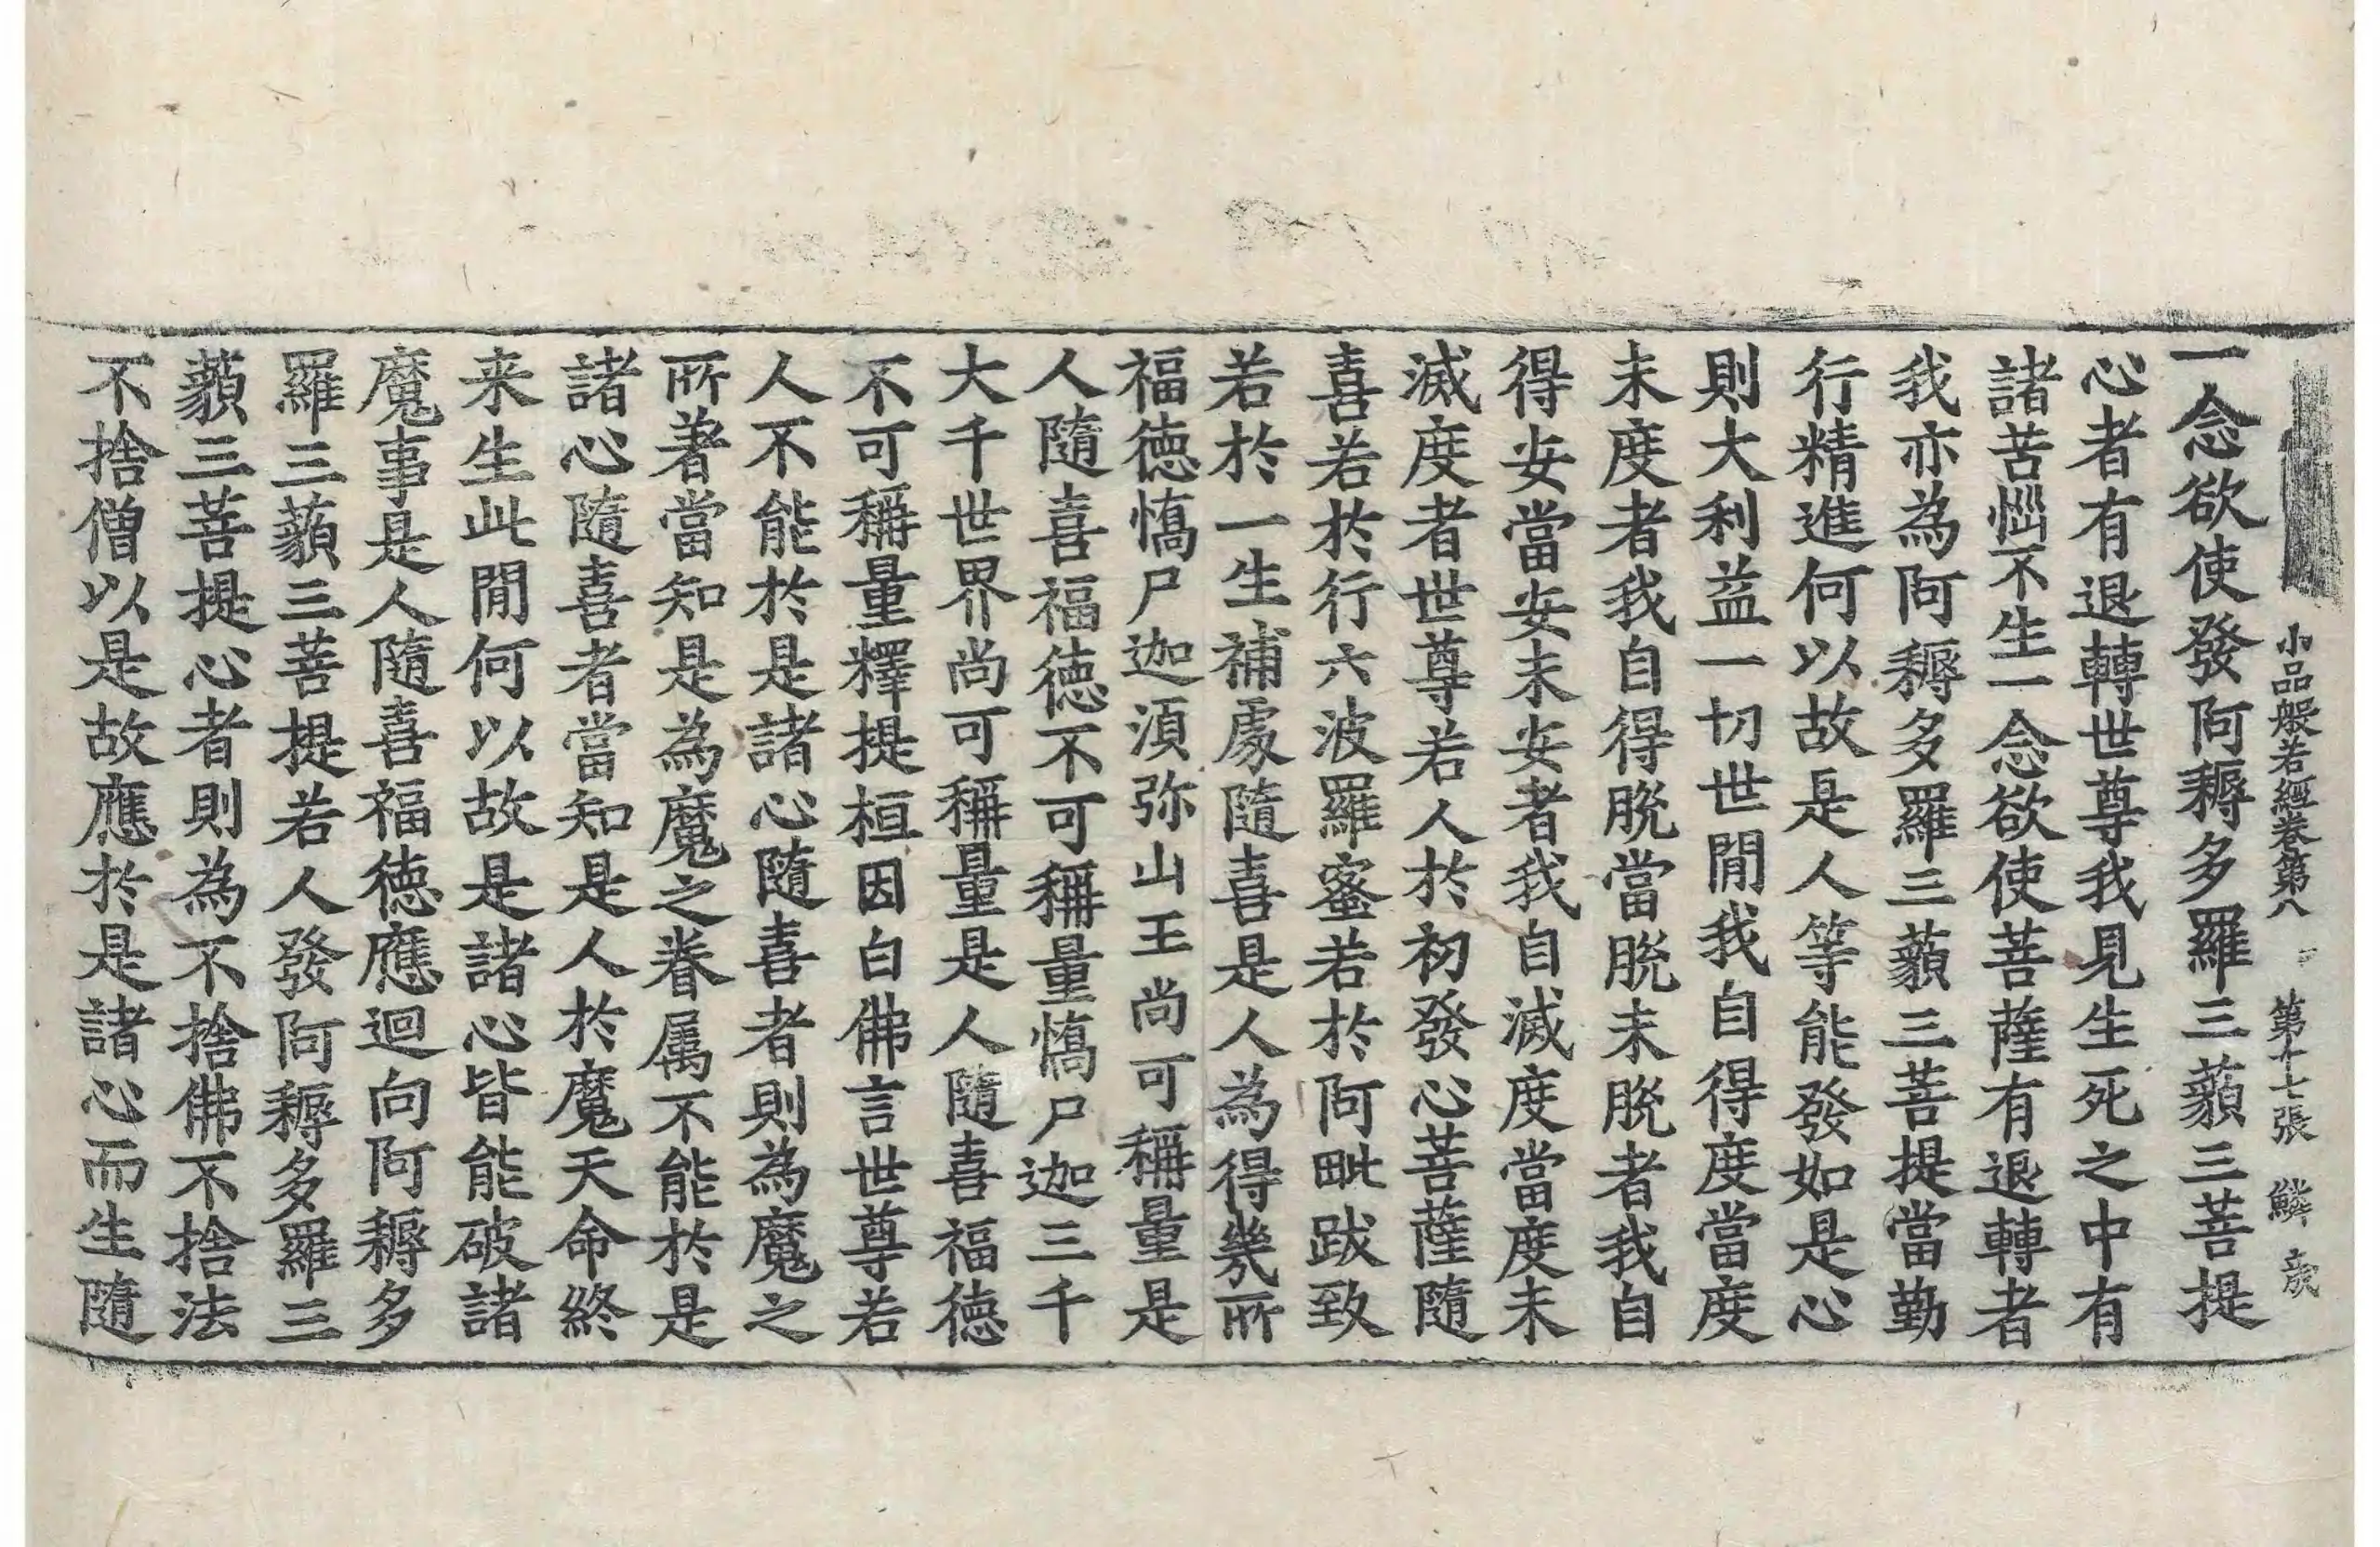 小品般若經卷第八 第十七張 鱗
一念欲使發阿耨多羅三藐三菩提
心者有退轉世尊我見生死之中有
諸苦惱不生一念欲使菩薩有退轉者
我亦為阿耨多羅三藐三菩提當勤
行精進何以故是人等能發如是心
則大利益一切世閒我自得度當度
未度者我自得脫當脫未脫者我自
得安當安未安者我自滅度當度未
滅度者世尊若人於初發心菩薩隨
喜若於行六波羅蜜若於阿毗跋致
若於一生補處隨喜是人為得幾所
福德憍尸迦須弥山王尚可稱量是
人隨喜福德不可稱量憍尸迦三千
大千世界尚可稱量是人隨喜福德
不可稱量釋提桓因白佛言世尊若
人不能於是諸心隨喜者則為魔之
所著當知是為魔之眷属不能於是
諸心隨喜者當知是人於魔天命終
来生此閒何以故是諸心皆能破諸
魔事是人隨喜福德應迴向阿耨多
羅三藐三菩提若人發阿耨多羅三
藐三菩提心者則為不捨佛不捨法
不捨僧以是故應於是諸心而生隨